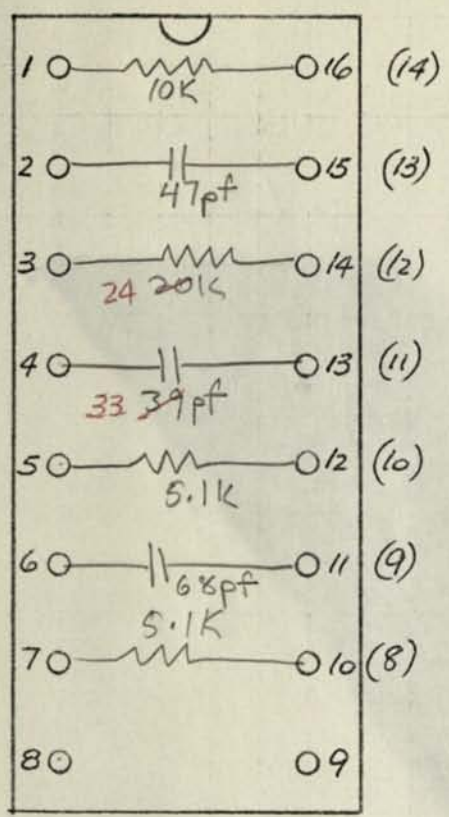 1 16 (14)
10K
2 15 (13)
47pf
3 14 (12)
24 20K
4 13 (11)
33 39pf
5 12 (10)
5.1K
6 11 (9)
68pf
5.1K
7 10 (8)
8 9